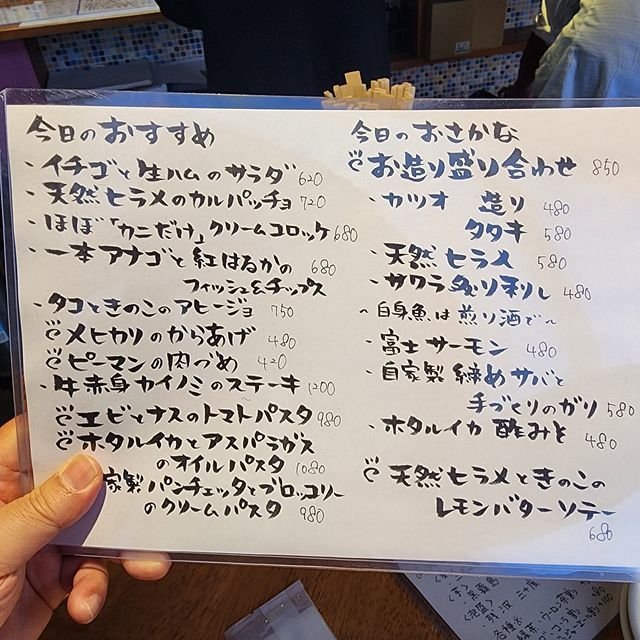 今日のおすすめ
・イチゴと生ハムのサラダ 620
・天然ヒラメのカルパッチョ 720
・ほぼ「カニだけ」クリームコロッケ 680
・一本アナゴと紅はるかの 680
フィッシュ&チップス
・タコときのこのアヒージョ 750
メヒカリのからあげ 480
ピーマンの肉づめ 420
・牛赤身カイノミのステーキ 1200
エビとナスのトマトパスタ 980
ホタルイカとアスパラガス
のオイルパスタ 1080
家製パンチェッタとブロッコリー
のクリームパスタ 980
今日のおさかな
お造り盛り合わせ 850
・カツオ 造り 480
タタキ 580
・天然ヒラメ 580
・サワラ炙り刺し 480
〜白身魚は煎り酒で〜
・富士サーモン 480
・自家製締めサバと
手づくりのガリ 580
・ホタルイカ 酢みそ 480
天然ヒラメときのこの
レモンバターソテー
680